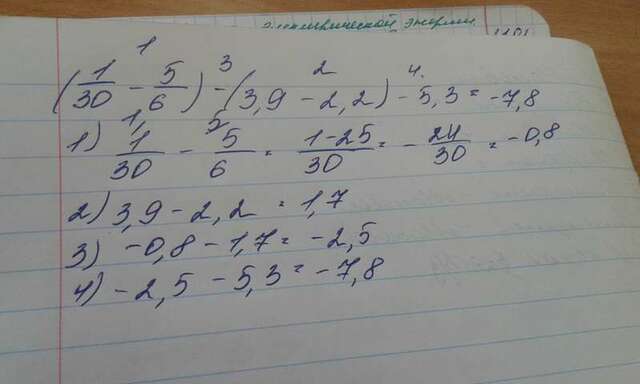 электрической энергии
1 3 2 4.
(1/30 - 5/6) - (3,9 - 2,2) - 5,3 = -7,8
1) 1/30 - 5/6 = 1-25/30 = -24/30 = -0,8
2) 3,9 - 2,2 = 1,7
3) -0,8 - 1,7 = -2,5
4) -2,5 - 5,3 = -7,8